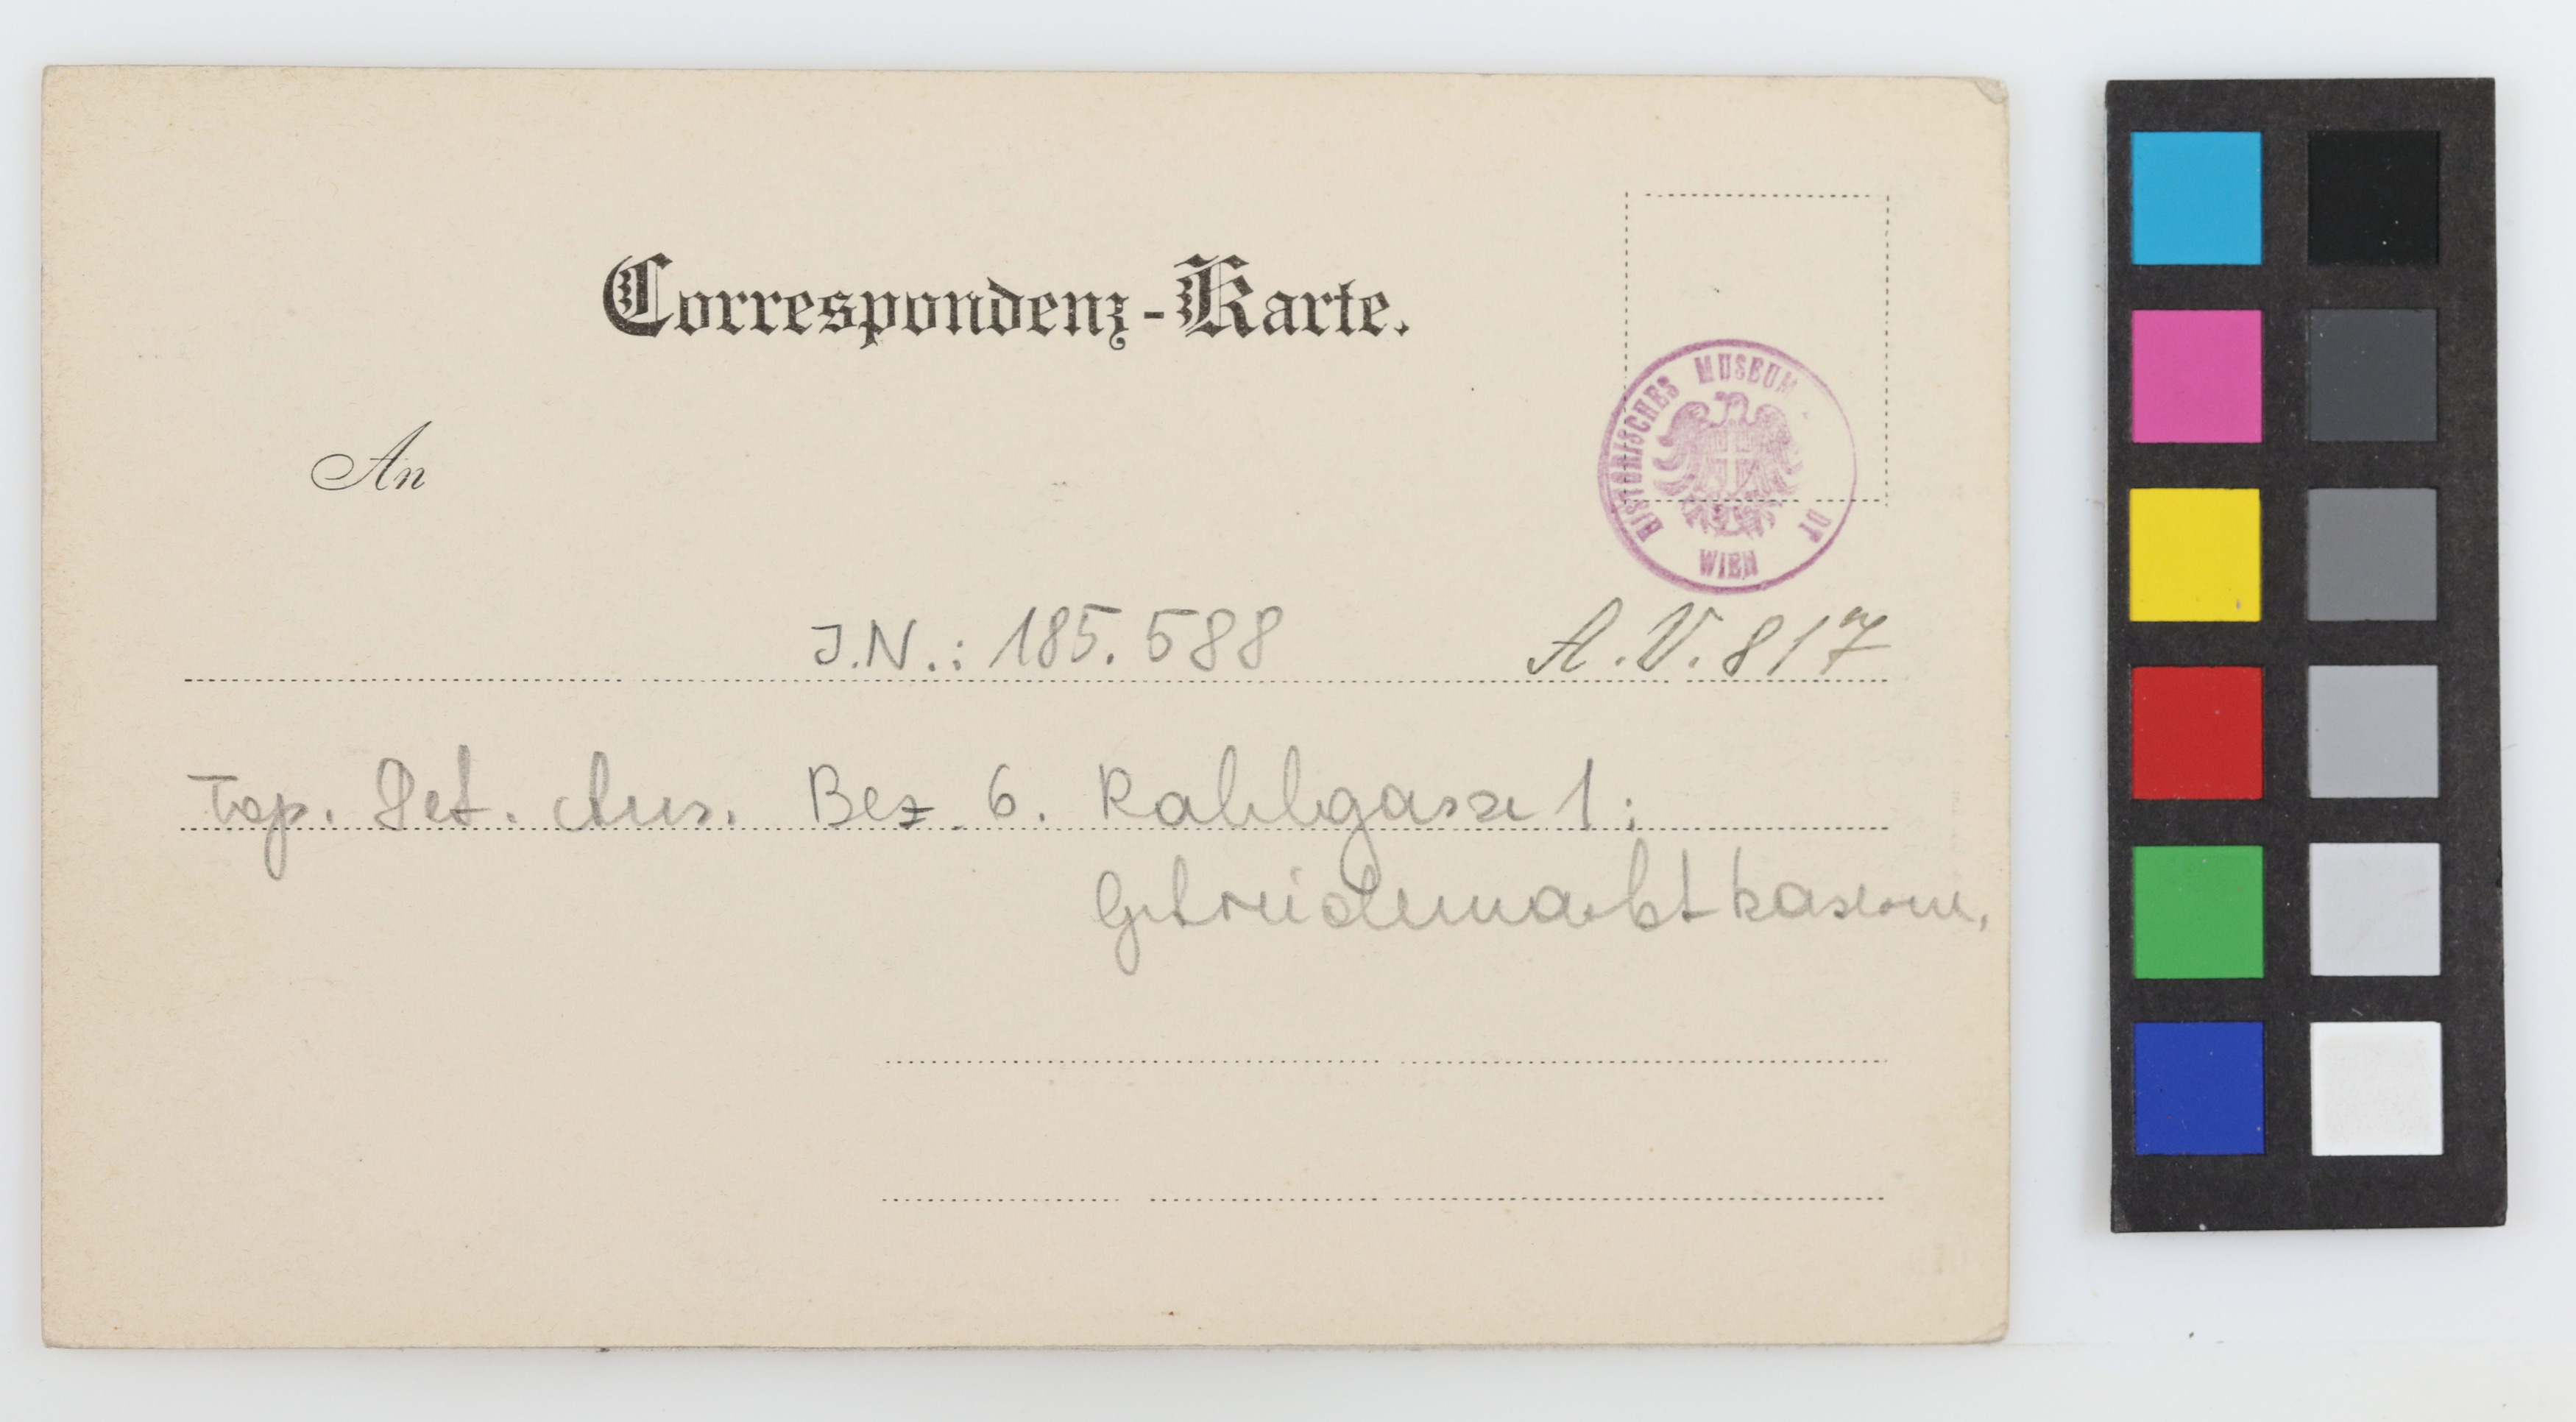 Correspondenz-Karte.
HISTORISCHES MUSEUM
DT
WIEN
An
J.N.: 185.588 A.V. 817
Top. Det. Aus. Bez 6. Rahlgasse 1;
Getreidemarktkaserne,